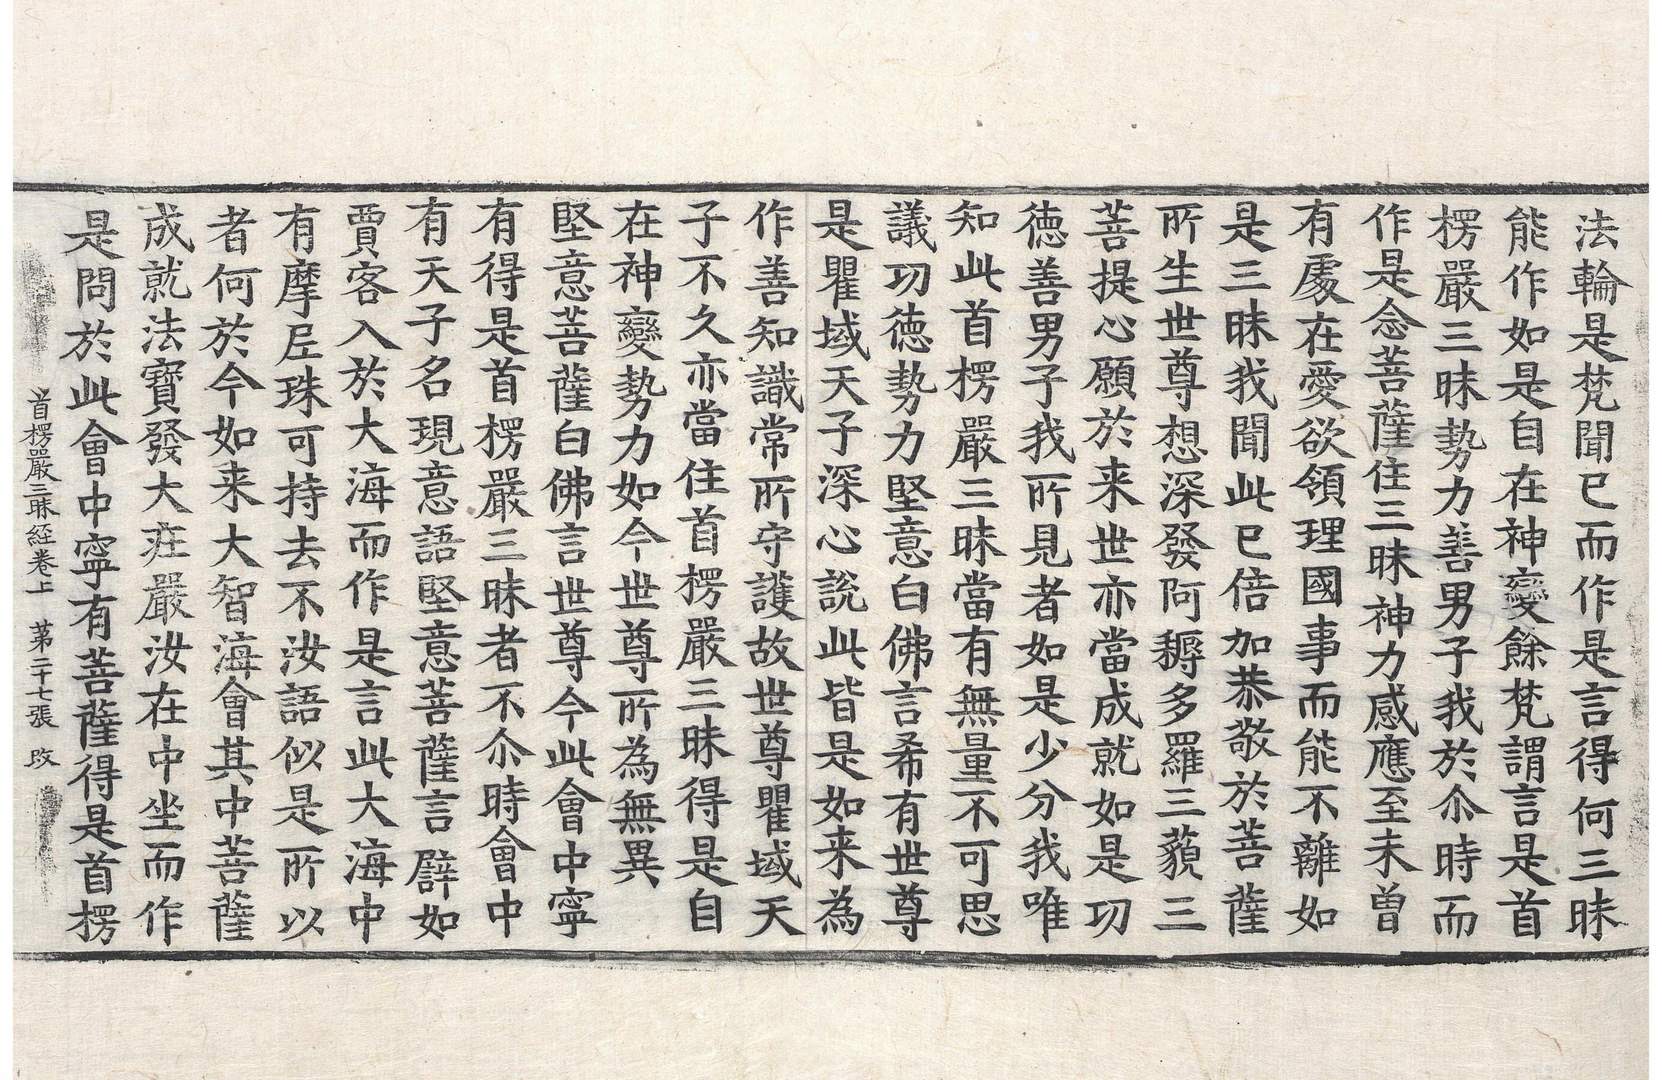 法輪是梵聞已而作是言得何三昧
能作如是自在神變餘梵謂言是首
楞嚴三昧勢力善男子我於尒時而
作是念菩薩住三昧神力感應至未曾
有處在愛欲領理國事而能不離如
是三昧我聞此已倍加恭敬於菩薩
所生世尊想深發阿耨多羅三藐三
菩提心願於来世亦當成就如是功
德善男子我所見者如是少分我唯
知此首楞嚴三昧當有無量不可思
議功德勢力堅意白佛言希有世尊
是瞿域天子深心說此皆是如来為
作善知識常所守護故世尊瞿域天
子不久亦當住首楞嚴三昧得是自
在神變勢力如今世尊所為無異
堅意菩薩白佛言世尊今此會中寧
有得是首楞嚴三昧者不尒時會中
有天子名現意語堅意菩薩言譬如
賈客入於大海而作是言此大海中
有摩尼珠可持去不汝語似是所以
者何於今如来大智海會其中菩薩
成就法寶發大莊嚴汝在中坐而作
是問於此會中寧有菩薩得是首楞
首楞嚴三昧経卷上 苐二十七張 改